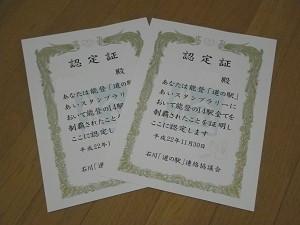 認定証
殿
あなたは能登「道の駅」
あいスタンプラリーに
おいて能登の14駅全てを
制覇されたことを
ここに認定し
平成22年1
石川「道
認定証
殿
あなたは能登「道の駅」
あいスタンプラリーに
おいて能登の14駅全てを
制覇されたことを証明し
ここに認定します
平成22年11月30日
石川「道の駅」連絡協議会